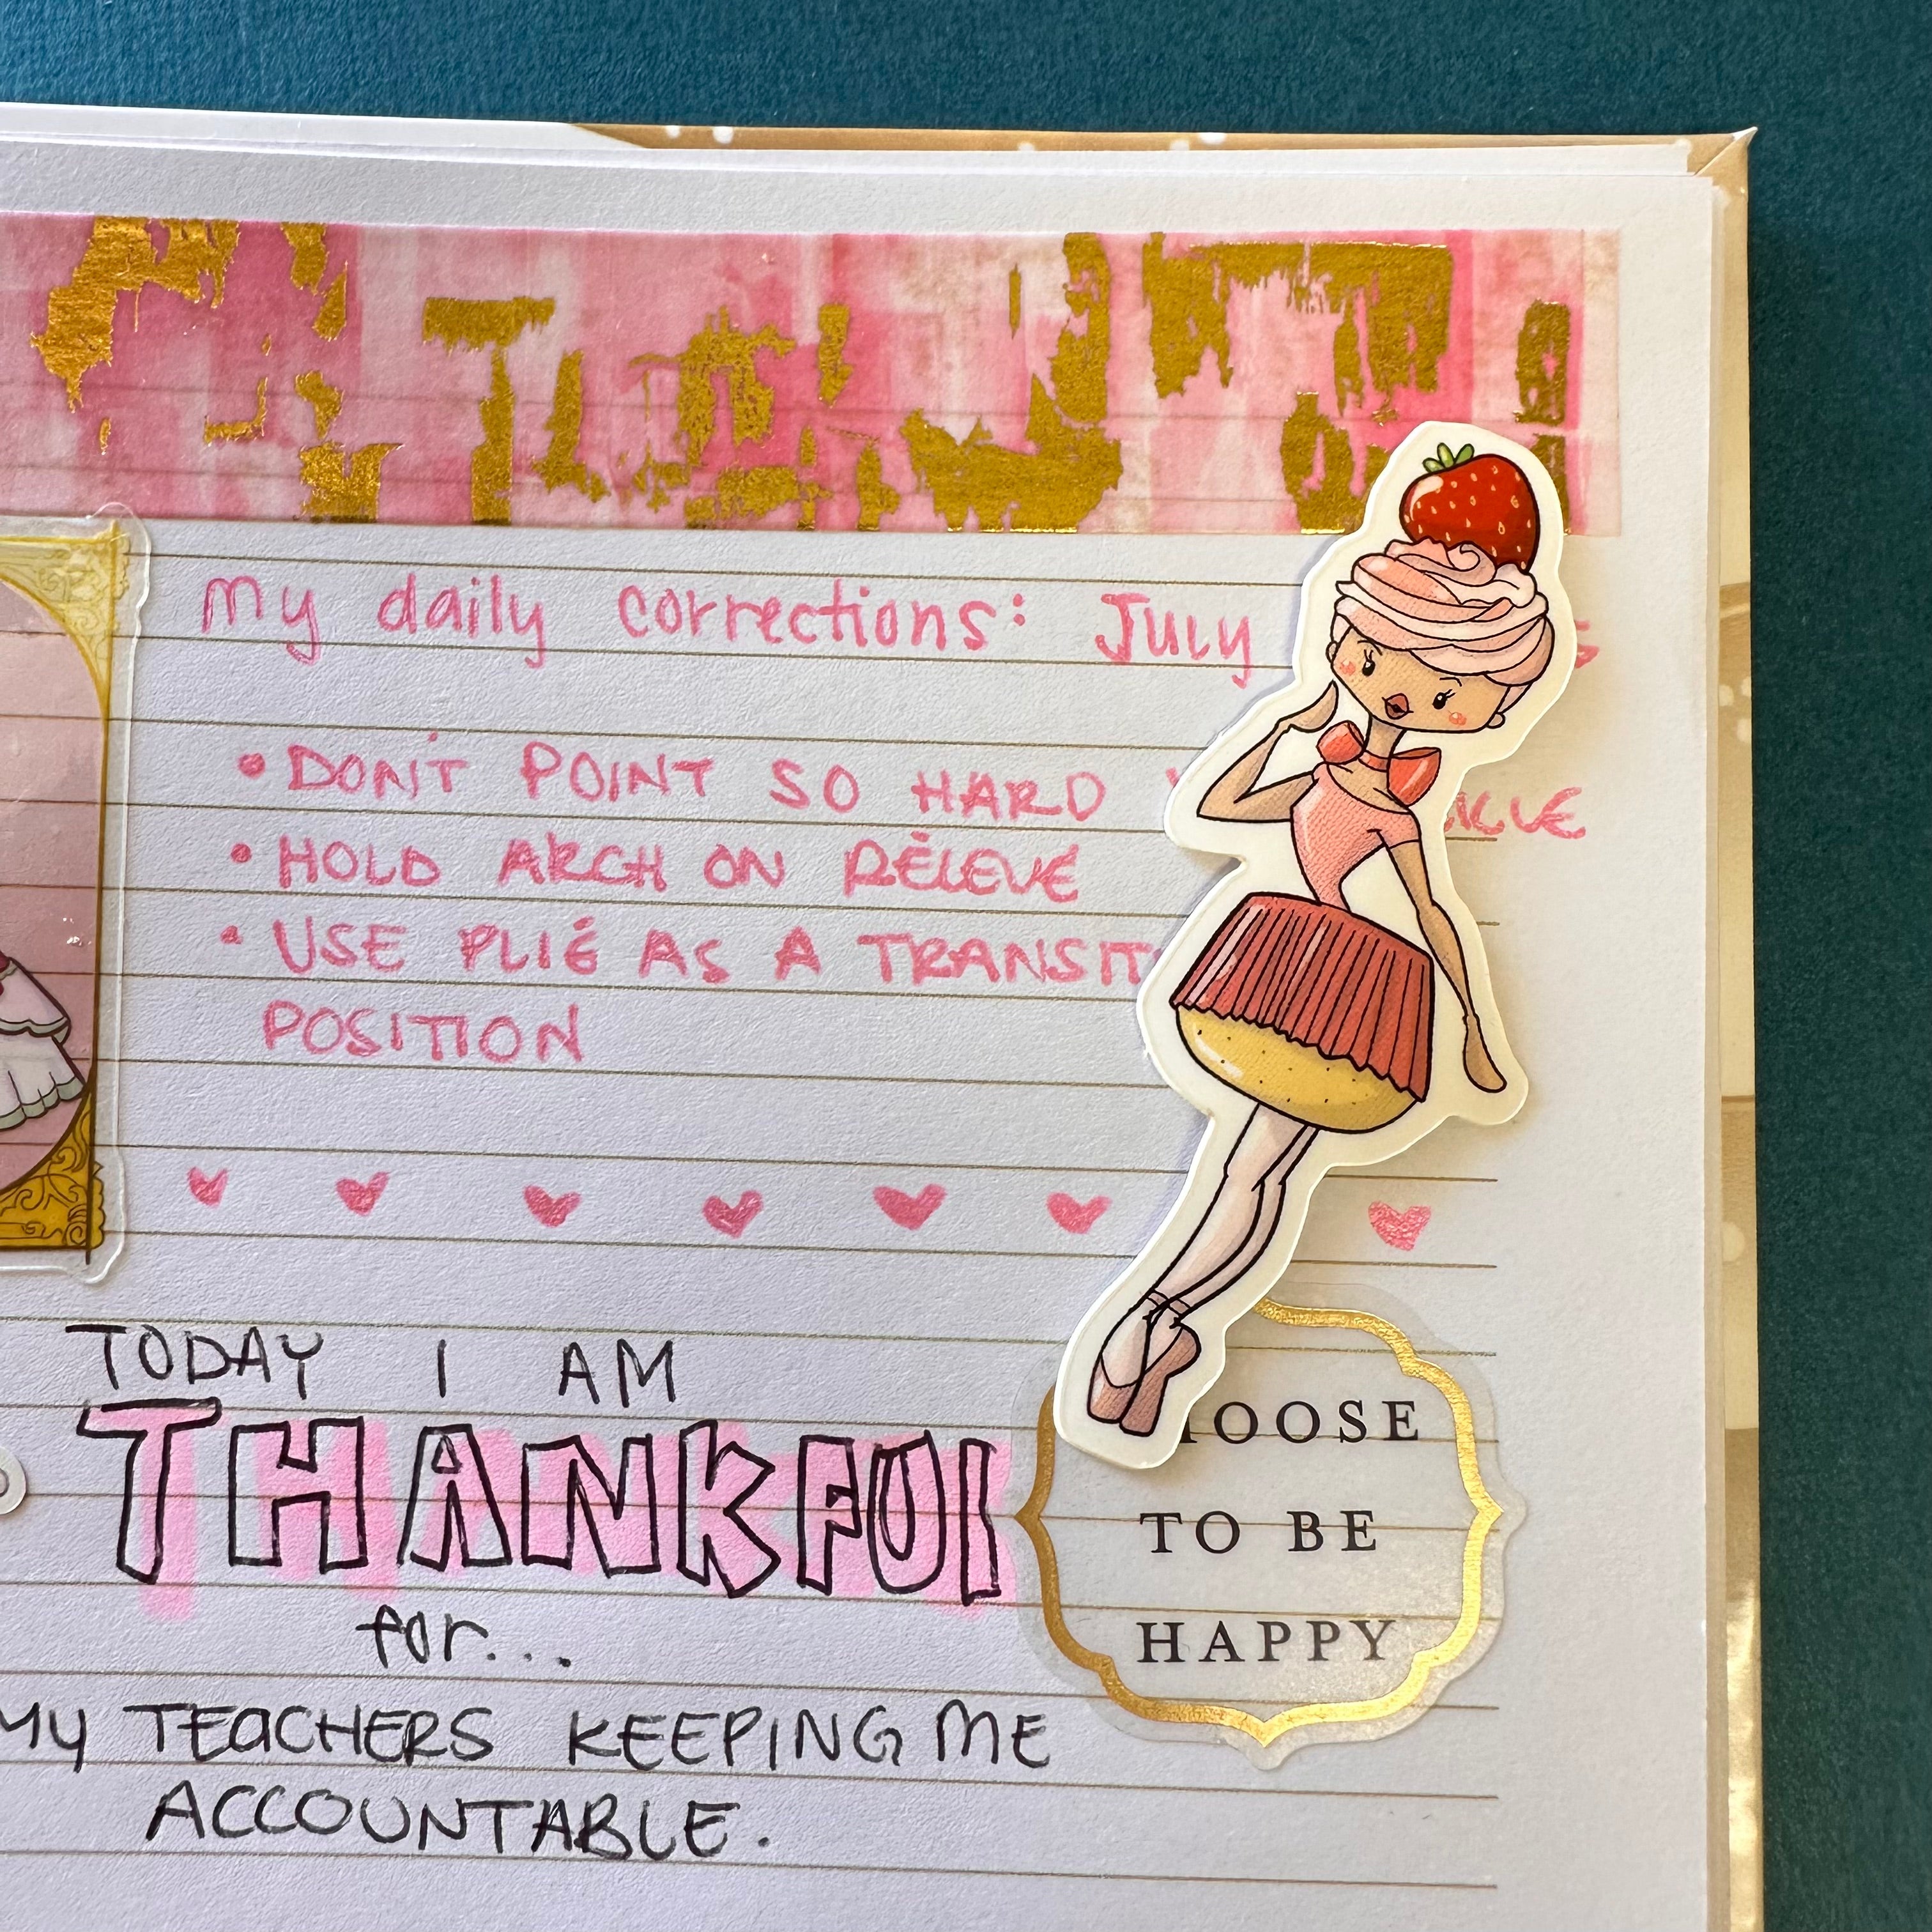 my daily corrections: July
• DON'T POINT SO HARD
• HOLD ARCH ON RÉLEVÉ
• USE PLIÉ AS A TRANSIT
POSITION
TODAY I AM
THANKFUL
for...
MY TEACHERS KEEPING ME
ACCOUNTABLE.
OOSE
TO BE
HAPPY